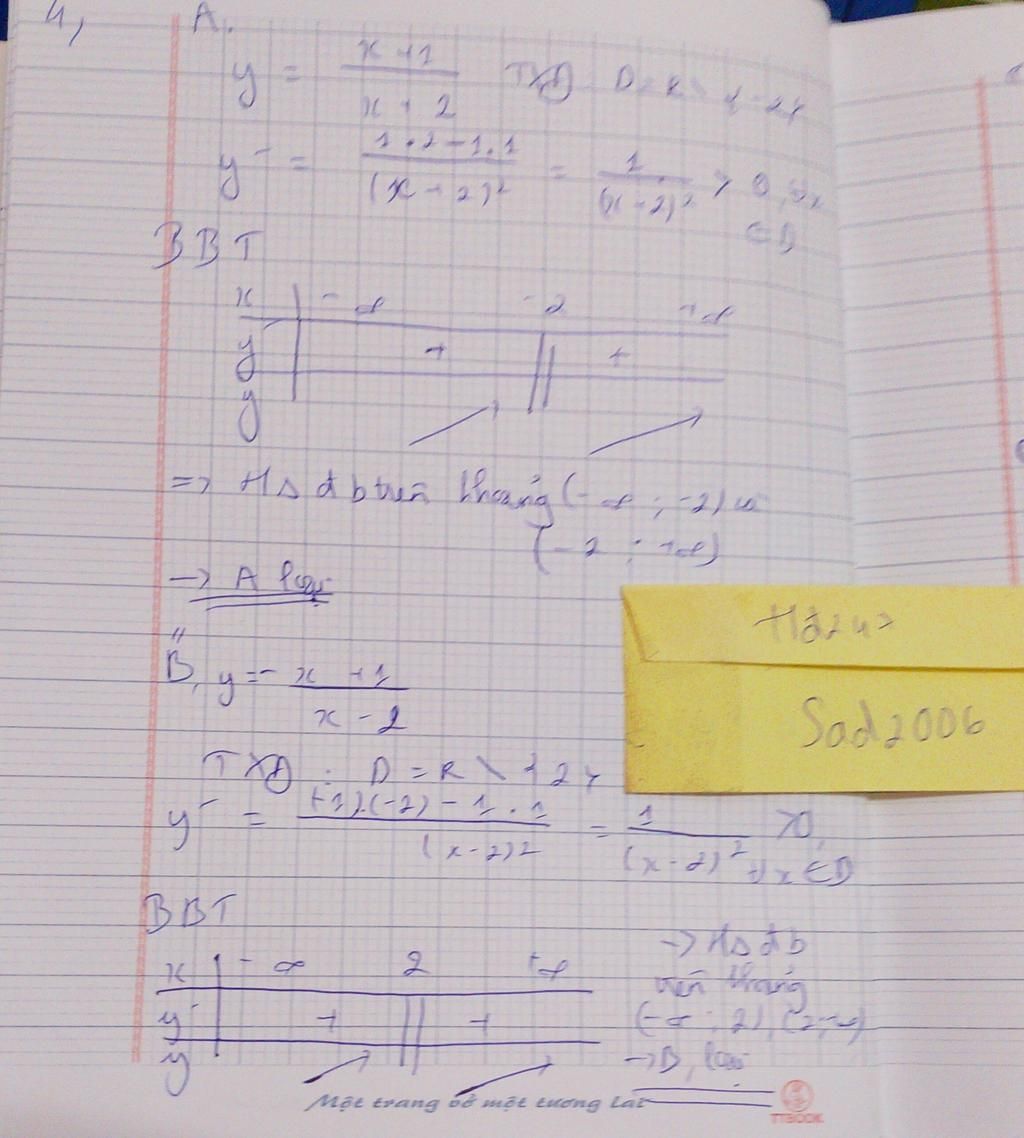 4, A.
y = x+1 / x+2 TXĐ D = R \ {-2}
y' = 1.2-1.1 / (x-2)² = 1 / (x-2)² > 0, ∀x
∈ D
BBT
x -∞ -2 +∞
y' + +
y
=> Hs đb trên khoảng (-∞ ; -2) và
(-2 ; +∞)
-> A loại
B, y = -x+1 / x-2
TXĐ : D = R \ {2}
y' = (-1).(-2) - 1.1 / (x-2)² = 1 / (x-2)² > 0, ∀x ∈ D
BBT
x -∞ 2 +∞
y' + +
y
-> Hs đb
trên khoảng
(-∞ ; 2), (2; +∞)
-> B, loại
Sad2006
Một trang vở một tương lai
TTBOOK